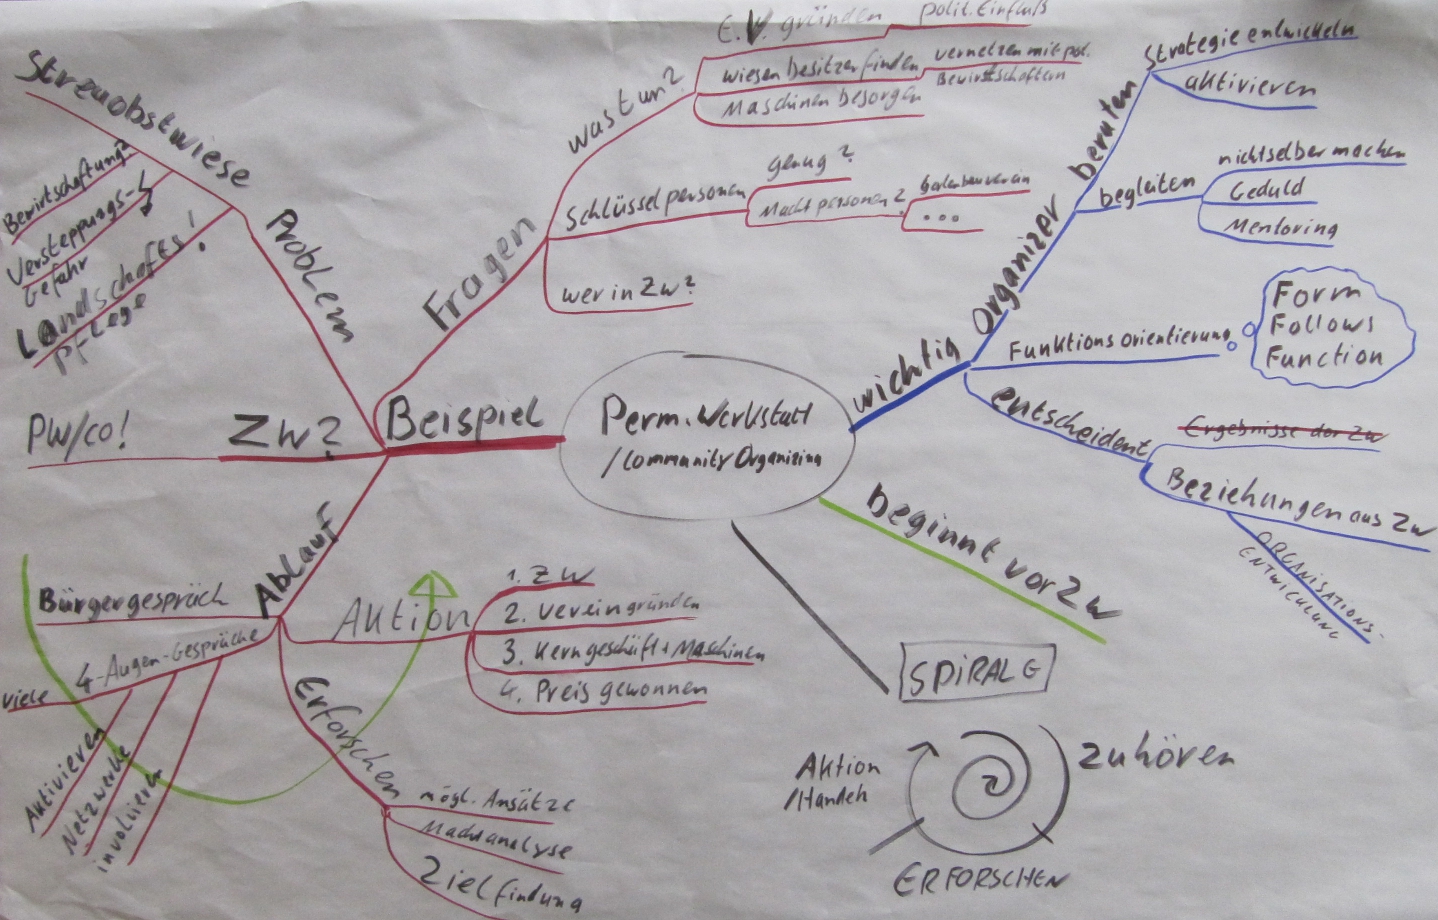 Perm. Werkstatt
/Community Organizing
Beispiel
Problem
Streuobstwiese
Bewirtschaftung?
Versteppungs-
Gefahr
Landschafts!
Pflege
ZW?
PW/CO!
Fragen
was tun?
E.V. gründen
polit. Einfluß
wiesenbesitzer finden
vernetzen mit pot.
Bewirtschaftern
Maschinen besorgen
Schlüsselpersonen
genug?
Machtpersonen?
Gartenbauverein
...
wer in ZW?
Ablauf
Bürgergespräch
4-Augen-Gespräche
viele
Aktivieren
Netzwerke
involvieren
Aktion
1. ZW
2. Verein gründen
3. Kerngeschäft + Maschinen
4. Preis gewonnen
Erforschen
mögl. Ansätze
Machtanalyse
Zielfindung
wichtig
Organizer
beraten
Strategie entwickeln
aktivieren
begleiten
nicht selber machen
Geduld
Mentoring
Funktionsorientierung
Form
Follows
Function
entscheident
Ergebnisse der ZW
Beziehungen aus ZW
ORGANISATIONS-
ENTWICKLUNG
beginnt vor ZW
SPIRALE
zuhören
ERFORSCHEN
Aktion
/Handeln